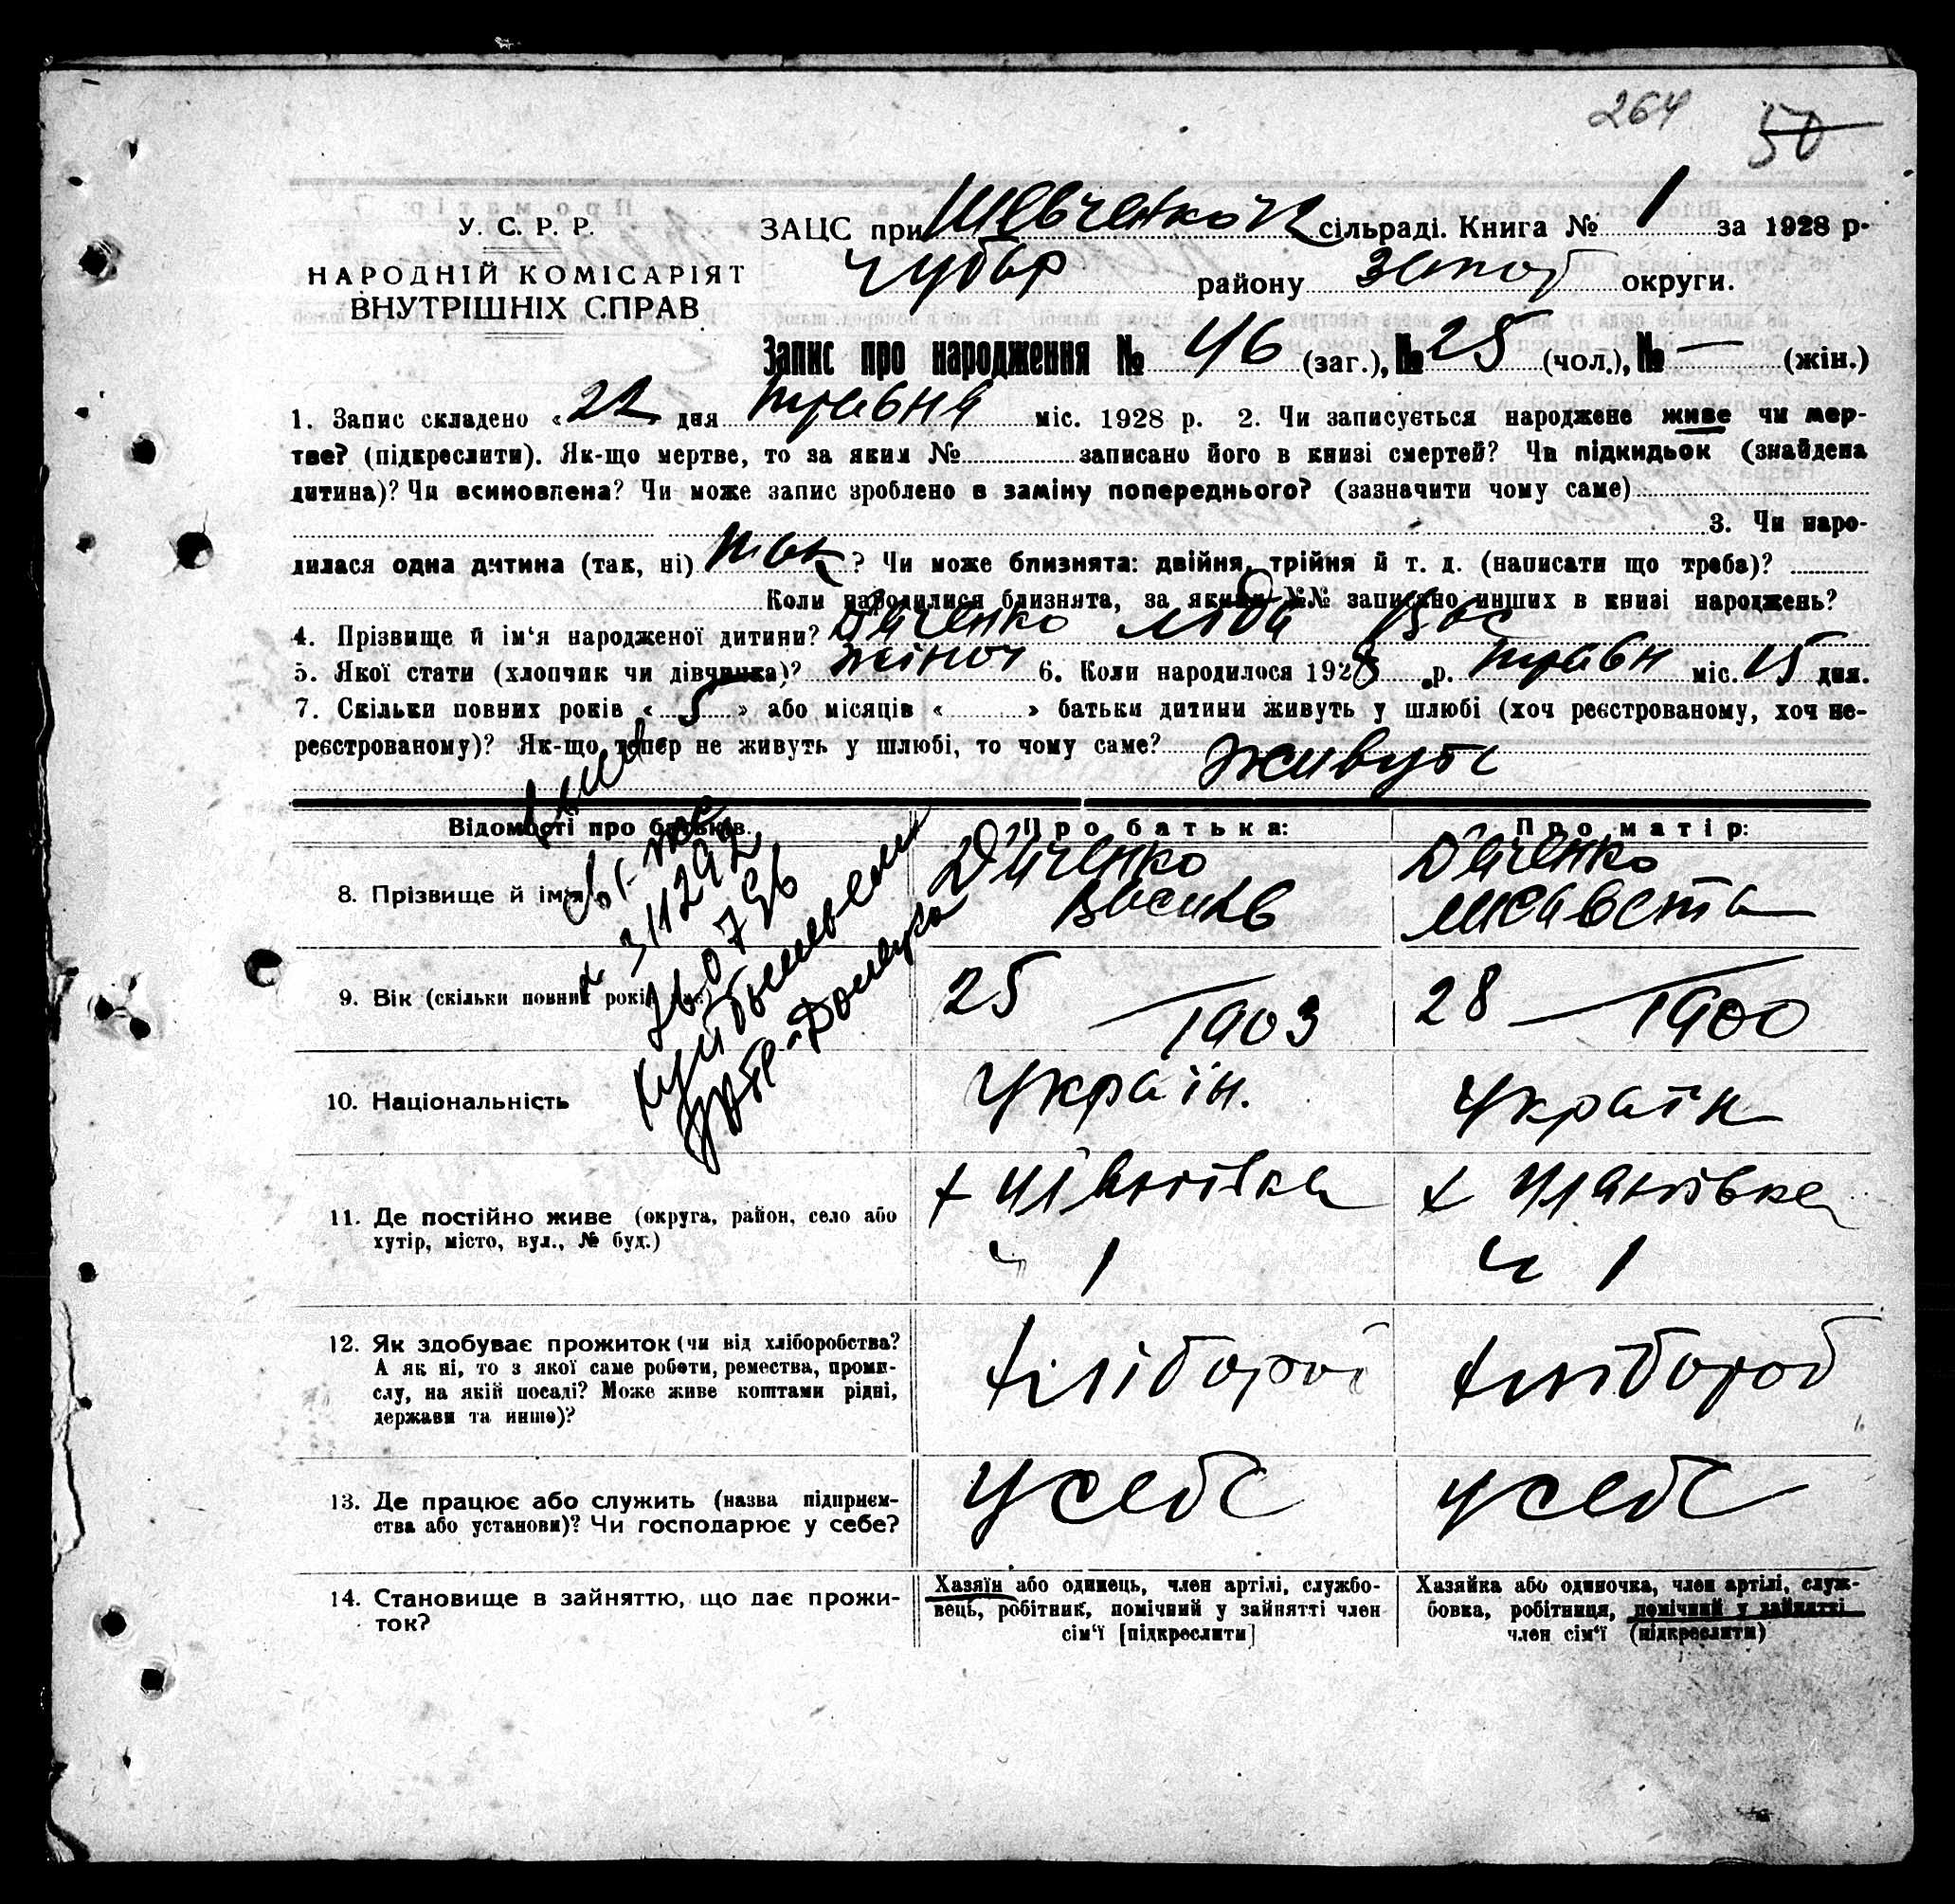 264 50
У. С. Р. Р.
НАРОДНІЙ КОМІСАРІЯТ
ВНУТРІШНІХ СПРАВ
ЗАЦС при Шевченкок сільраді. Книга № 1 за 1928 р.
Чубар району Запор округи.
Запис про народження № 46 (заг.), № 25 (чол.), № — (жін.)
1. Запис складено «22 дня травня міс. 1928 р. 2. Чи записується народжене живе чи мер-
тве? (підкреслити). Як-що мертве, то за яким № записано його в книзі смертей? Чи підкидьок (знайдена
дитина)? Чи всиновлена? Чи може запис зроблено в заміну попереднього? (зазначити чому саме)
3. Чи наро-
дилася одна дитина (так, ні) так ? Чи може близнята: двійня, трійня й т. д. (написати що треба)?
Коли народилися близнята, за якими №№ записано инших в книзі народжень?
4. Прізвище й ім‘я народженої дитини? Дяченко Вас
5. Якої стати (хлопчик чи дівчинка)? жіноч 6. Коли народилося 1928 р. травн міс. 15 дня.
7. Скільки повних років « 5 » або місяців « » батьки дитини живуть у шлюбі (хоч реєстрованому, хоч не-
реєстрованому)? Як-що тепер не живуть у шлюбі, то чому саме?
живуть
Відомості про батьків. Про батька: Про матір:
8. Прізвище й ім‘я Дяченко Василь Дяченко Лисавета
9. Вік (скільки повних років 25 1903 28 1900
10. Національність Україн. Україн
11. Де постійно живе (округа, район, село або
хутір, місто, вул., № буд.)
х Улянівка х Улянівка
ч 1 ч 1
12. Як здобуває прожиток (чи від хліборобства?
А як ні, то з якої саме роботи, ремества, проми-
слу, на якій посаді? Може живе коштами рідні,
держави та инше)?
хлібороб хлібороб
13. Де працює або служить (назва підприєм-
ства або установи)? Чи господарює у себе?
У себе у себе
14. Становище в зайняттю, що дає прожи-
ток?
Хазяїн або одинець, член артілі, службо-
вець, робітник, помічний у зайнятті член
сім‘ї [підкреслити]
Хазяйка або одиночка, член артілі, служ-
бовка, робітниця, помічний у зайнятті
член сім‘ї (підкреслити)